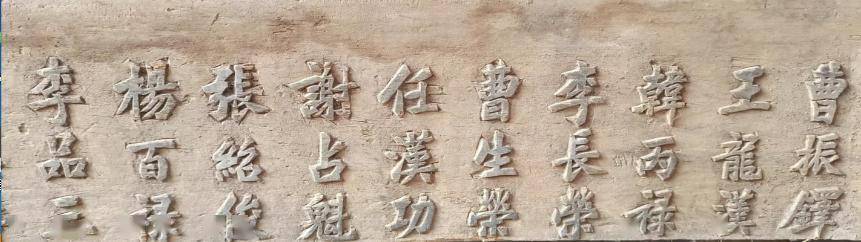 曹振鐸
王龍漢
韓丙禄
李長榮
曹生榮
任漢功
謝占魁
張紹俊
楊百禄
李品三